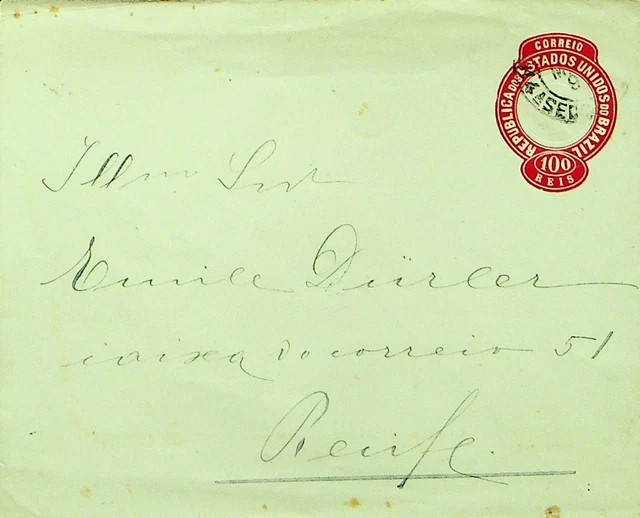 CORREIO
REPUBLICA DOS ESTADOS UNIDOS DO BRAZIL
100
REIS
Illmo Snr
Emile Dürler
caixa do correio 51
Recife